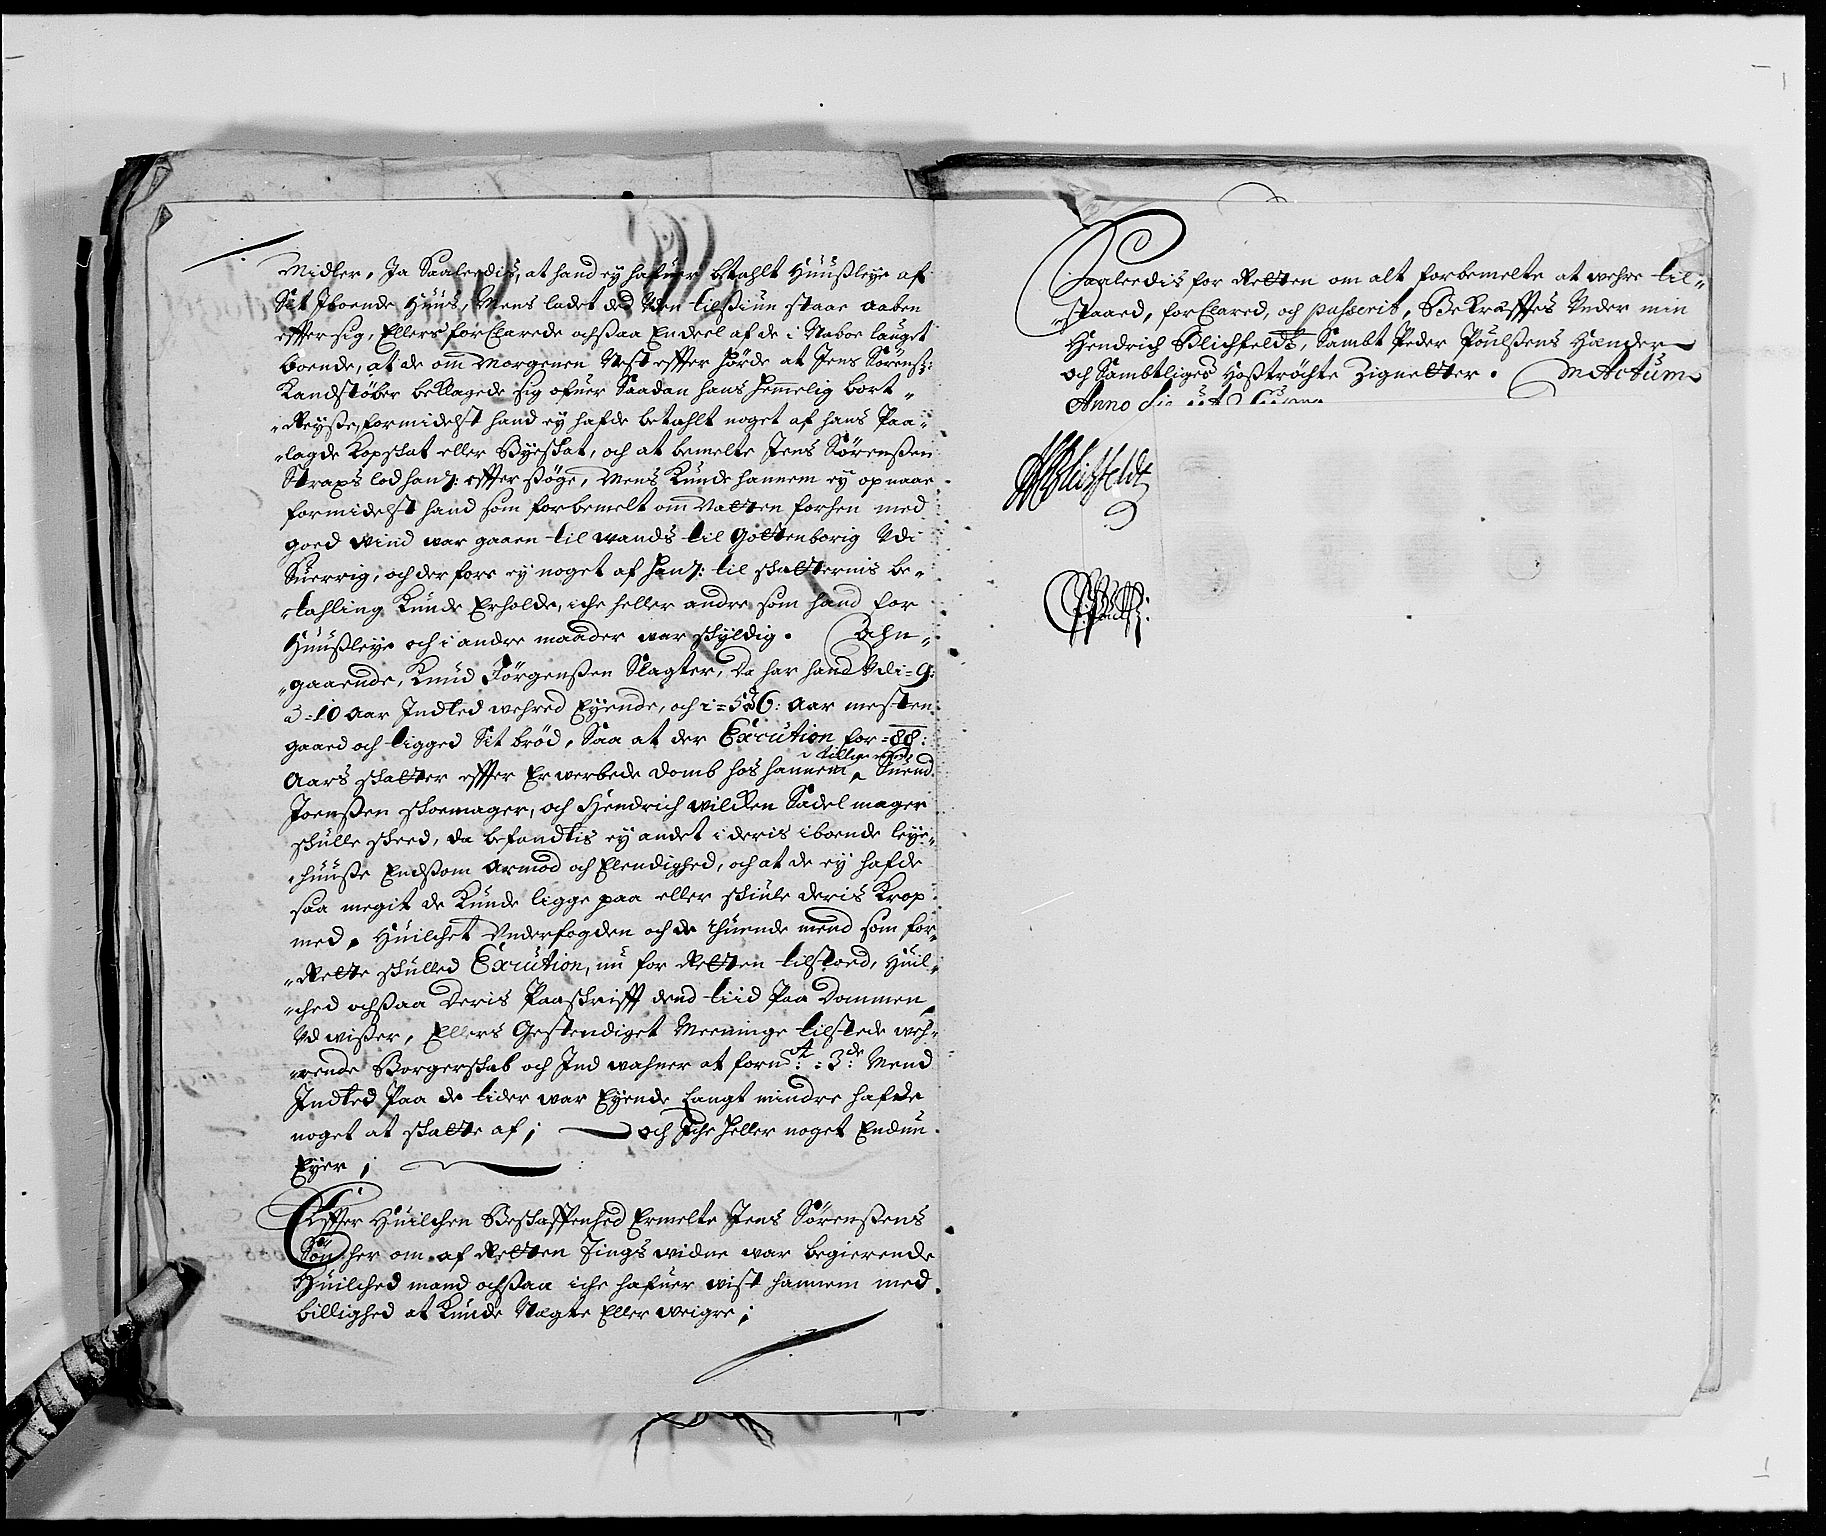 Midler, Ja Saaleedis, at hand ey hafuer bętahlt Huußleye af
Sit Jboende Huus, Mens ladet ded Uden tilßiun staae aaben
effter sig, Ellers forClarede ochßaa Endeel af de i Naboe lauget
boende, at de om Morgenen Nest effter hörde at Jens Sörenß:
Kandstöber beklagede sig ofuer Saadan hans hemelig bort-
-Reyße, formidelst hand ey hafde betahlt noget af hans Paa-
-lagde Kopskat eller Byeskat, och at bemelte Jens Sörenßen
Straxs lod hanȝ: effter ßöge, Mens Kunde hannem ey opnaae
formidelst hand som forbemelt om Natten forhen med
goed Wind war gaaen til wands til Gottenborig Udi
Suerrig, och derfore ey noget af hanȝ: til skatternis be-
-tahling Kunde Erholde, iche heller andre som hand for
Huußleye och i andre maader war skyldig. Ahn-
-gaaende, Knud Jörgenßen Slagter, Da har hand Udi 9:
à 10 Aar Jndted wehred Eyende, och i 5 à 6: Aar mesten
gaaed och tigged Sit bröd, Saa at der Execution for 88:
Aars skatter effter Erwerbede Domb hos hannem tillige med Suend
Joenßen skoemager, och Hendrich Wilcken Sadelmager
skulle skeed, da befandtis ey andet i deris iboende leye-
-huuße Endßom Armod och Elendighed, och at de ey hafde
saa megit de Kunde ligge paa eller skiule deris Krop
med. Huilchet Underfogden och de thuende mend som for-
-Rette skulled Execution, nu for Retten tilstoed, Huil-
-ched ochßaa Deris Paaskrifft dend tiid Paa Dommen
Udwißer, Ellers Gestendiget Meninge tilstede weh-
-rende Borgerskab och Jndwahner at fornt: 3de: Mend
Jndted Paa de tider war Eyende Langt mindre hafde
noget at skatte af; och Jche heller noget Endnu
Eyer;
Effter Huilchen Beskaffenhed Ermelte Jens Sörenßens
Sön her om af Retten Tingswidne war begierende
Huilched mand ochßaa iche hafuer wist hannem med
billighed at Kunde Nægte Eller weigre;
Saaleedis for Retten om alt forbemelte at wehre til-
-staaed, forClared, och passerit, Bekræfftes Under min
Hendrich Blichfeldts, Sambt Peder Poulßens Hænder
och Sambtliges Hoßtröchte Zignetter. Actum
Anno die ut supra
HBlichfeldt